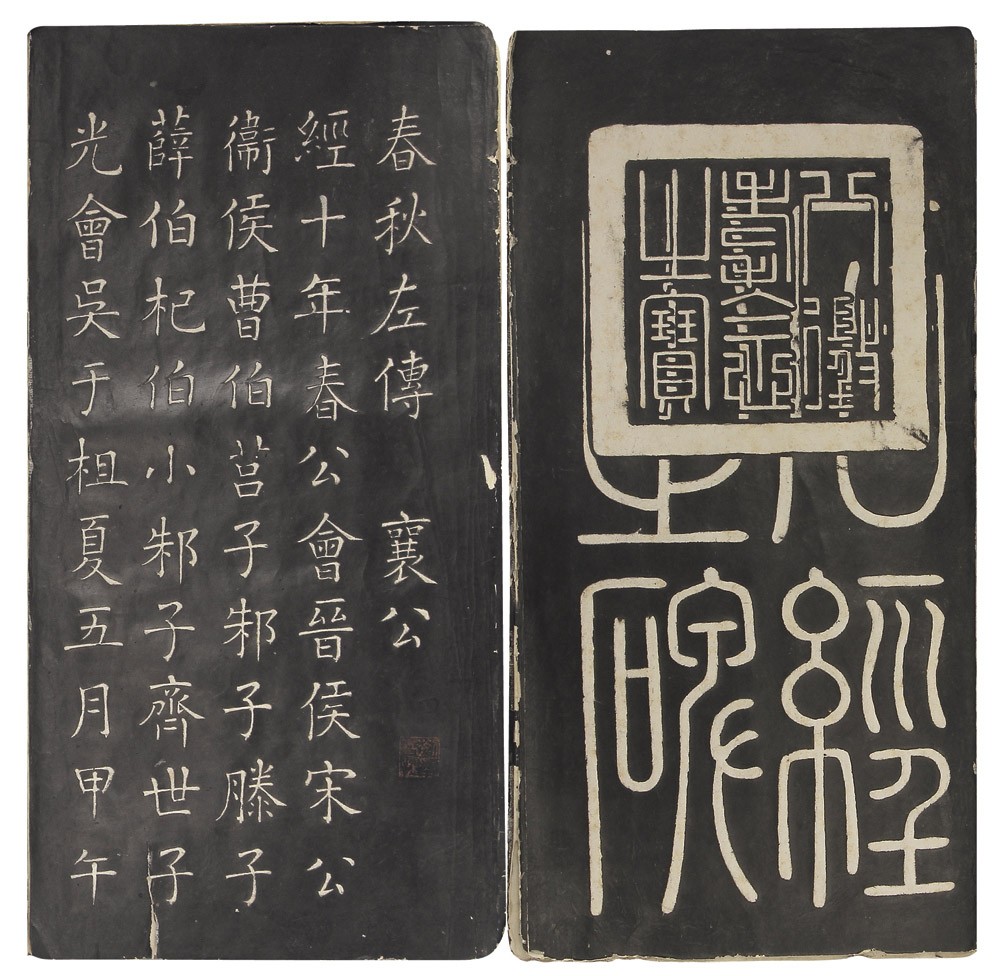 八徵
耄念
之寶
經
碑
春秋左傳 襄公
經十年春公會晉侯宋公
衞侯曹伯莒子邾子滕子
薛伯杞伯小邾子齊世子
光會吳于柤夏五月甲午